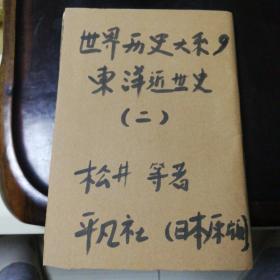 世界历史大系9
東洋近世史
(二)
松井 等著
平凡社 (日本原版)